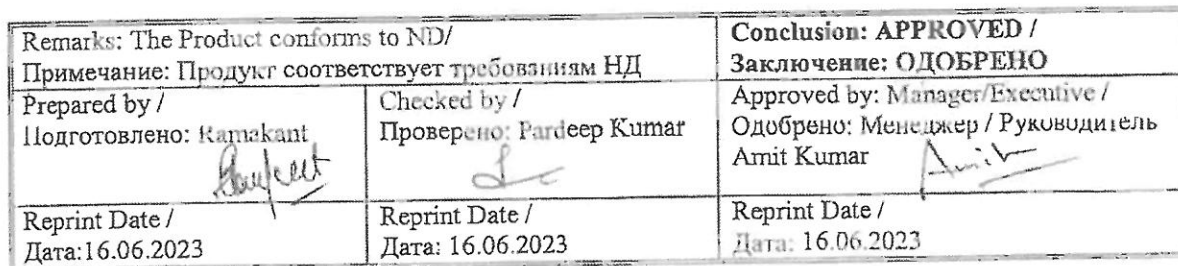 Remarks: The Product conforms to ND/
Примечание: Продукт соответствует требованиям НД
Conclusion: APPROVED /
Заключение: ОДОБРЕНО
Prepared by /
Подготовлено: Ramakant
Checked by /
Проверено: Pardeep Kumar
Approved by: Manager/Executive /
Одобрено: Менеджер / Руководитель
Amit Kumar
Amit
Reprint Date /
Дата:16.06.2023
Reprint Date /
Дата: 16.06.2023
Reprint Date /
Дата: 16.06.2023